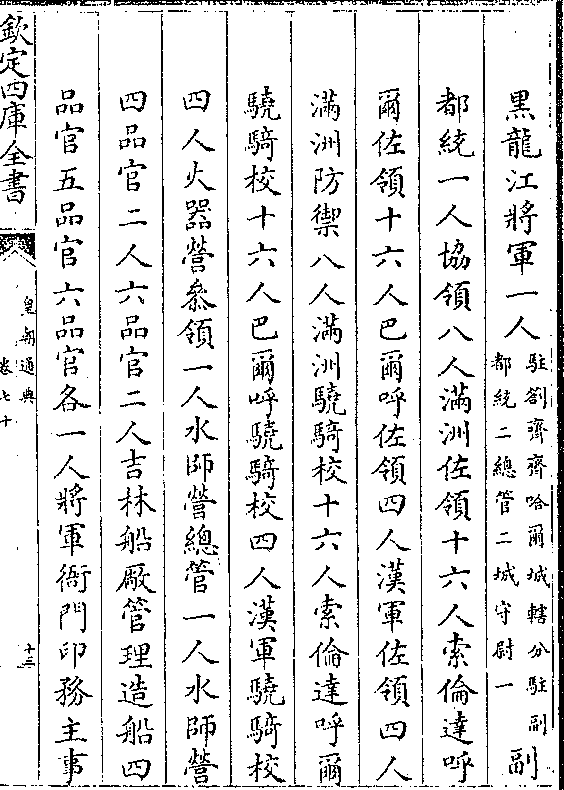 黒龍江將軍一人駐劄齊齊哈爾城轄分駐副都統二總管二城守尉一副
都統一人協領八人滿洲佐領十六人索倫達呼
爾佐領十六人巴爾呼佐領四人漢軍佐領四人
滿洲防禦八人滿洲驍騎校十六人索倫達呼爾
驍騎校十六人巴爾呼驍騎校四人漢軍驍騎校
四人火器營叅領一人水師營總管一人水師營
四品官二人六品官二人吉林船廠管理造船四
品官五品官六品官各一人將軍衙門印務主事
欽定四庫全書
皇朝通典
卷七十
十三